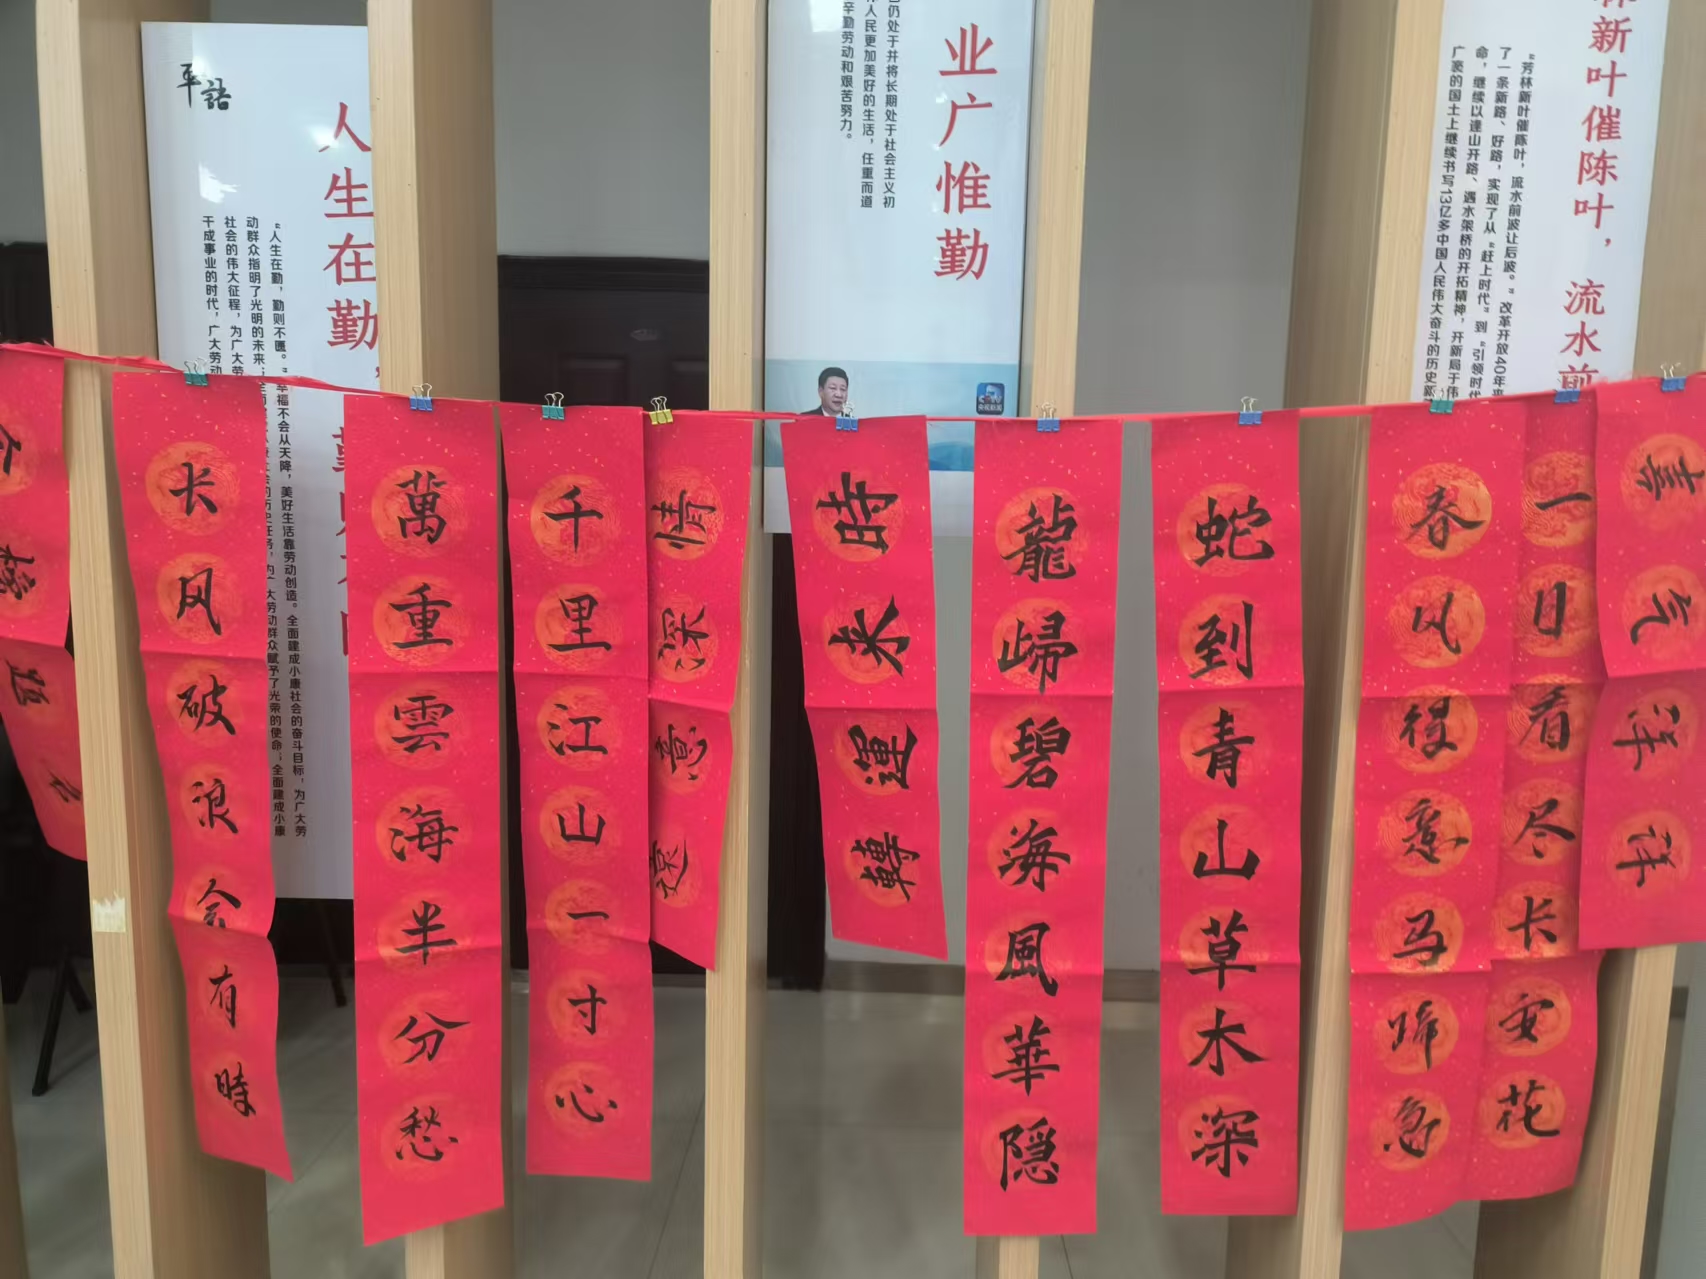 平語
人生在勤，
“人生在勤，勤则不匮。”幸福不会从天降，美好生活靠劳动创造。全面建成小康社会的奋斗目标，为广大劳
动群众指明了光明的未来；全面建成小康
社会的伟大征程，为广大劳
干成事业的时代，广大劳动
业广惟勤
仍处于并将长期处于社会主义初
人民更加美好的生活，任重而道
辛勤劳动和艰苦努力。
新叶催陈叶，流水前
“芳林新叶催陈叶，流水前波让后波。”改革开放40年来
了一条新路、好路，实现了从“赶上时代”到“引领时代
命，继续以逢山开路、遇水架桥的开拓精神，开新局于伟
广袤的国土上继续书写13亿多中国人民伟大奋斗的历史新
金榜题名
长风破浪会有時
萬重雲海半分愁
千里江山一寸心
情深意
時来運轉
龍歸碧海風華隠
蛇到青山草木深
春风得意马蹄急
一日看尽长安花
喜气洋洋